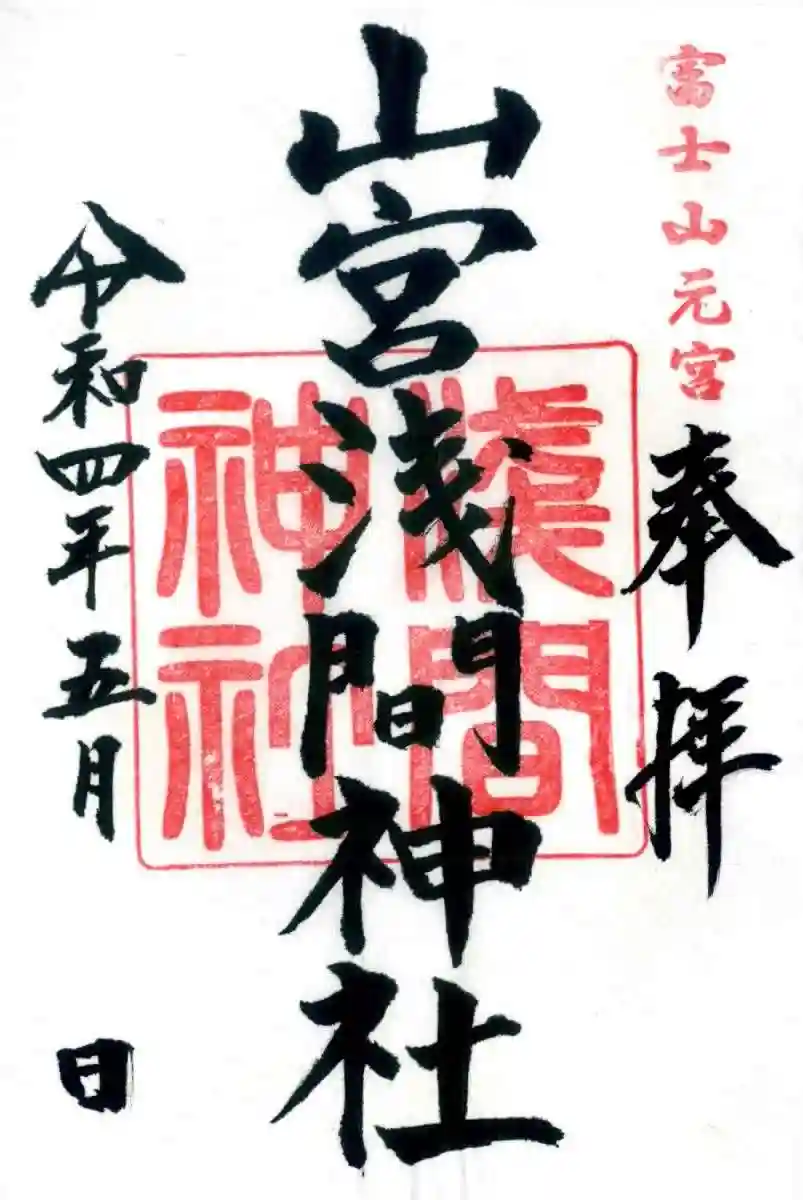 富士山元宮
奉拝
山宮浅間神社
浅間
神社
令和四年五月 日